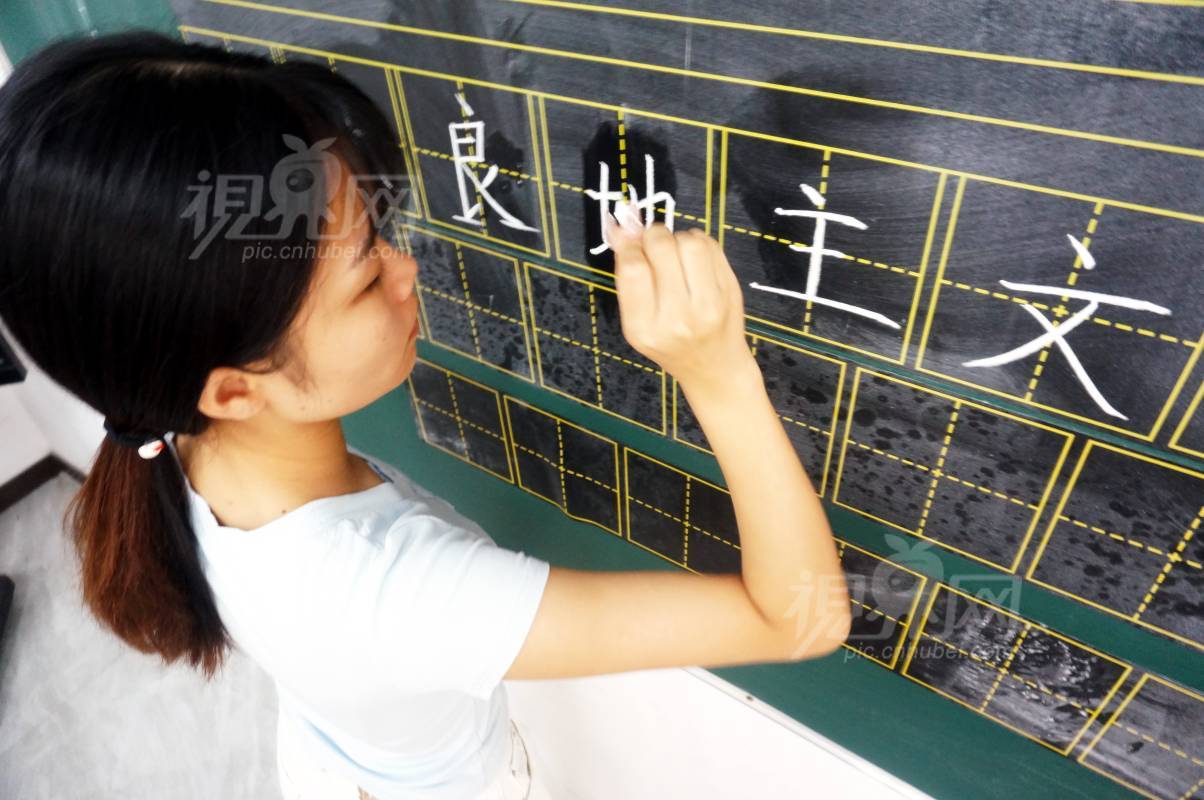 良地主文
視界网
pic.cnhubei.com
視界网
pic.cnhubei.com